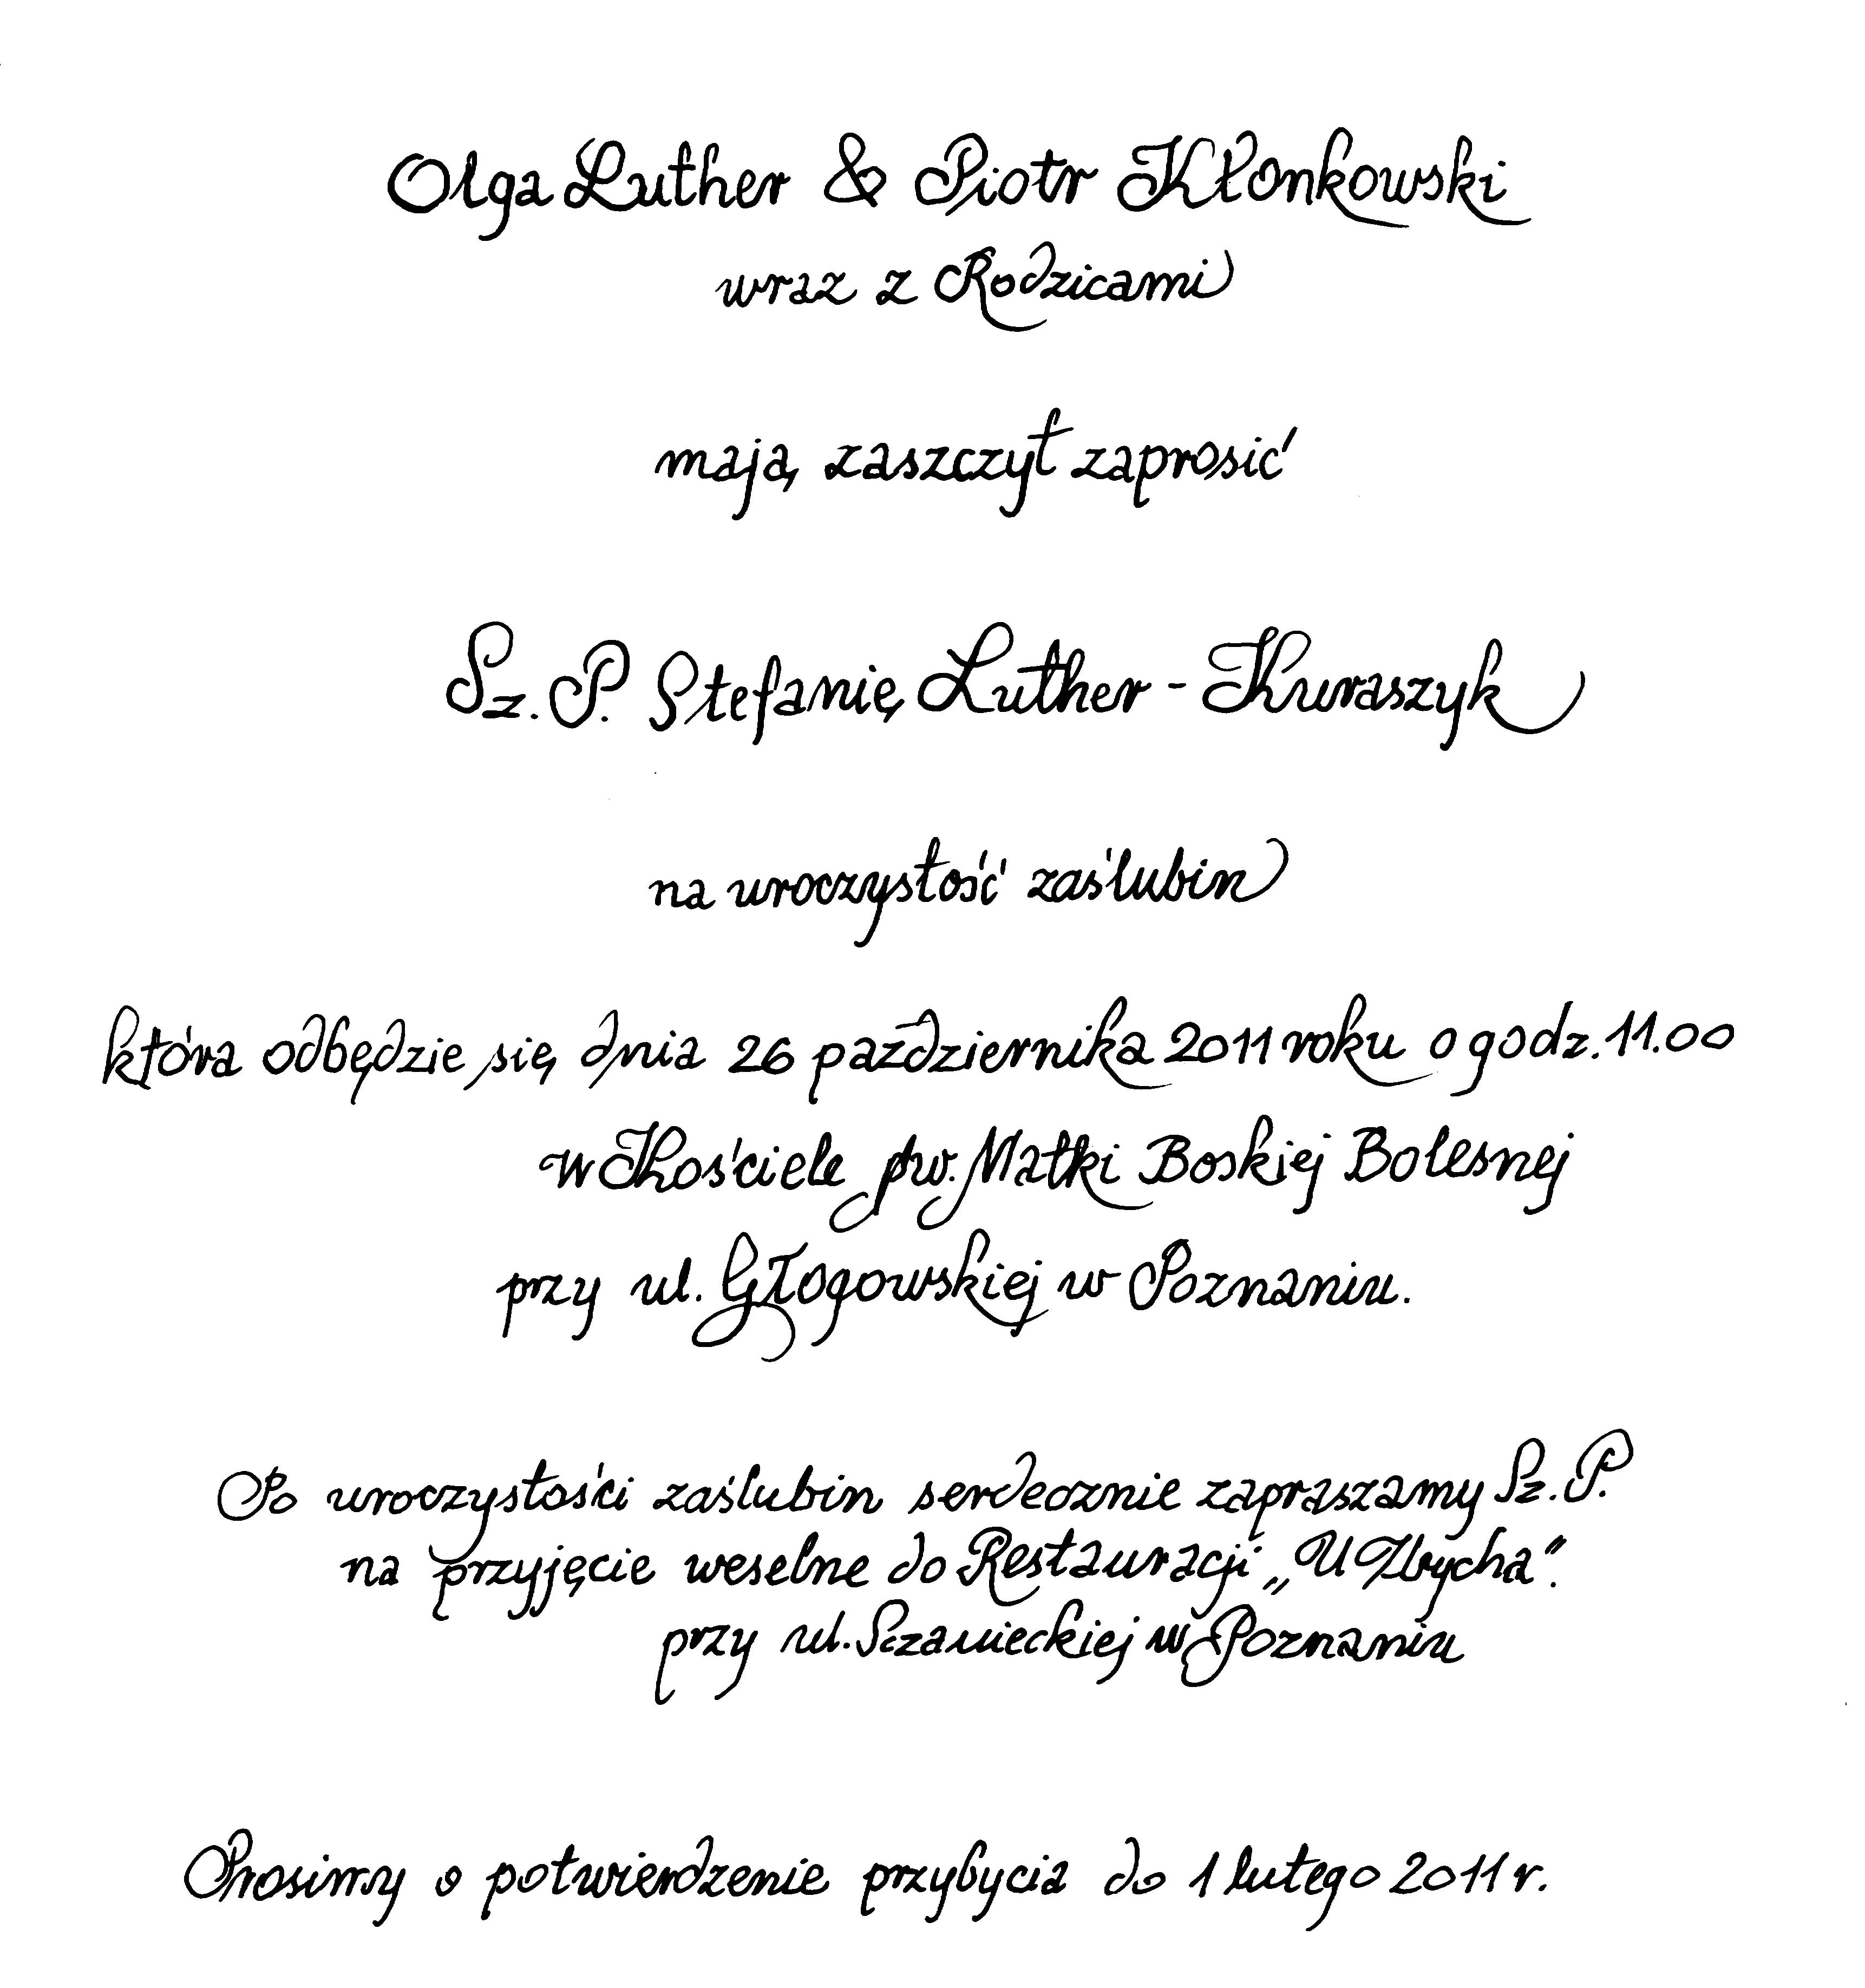 Olga Luther & Piotr Kłonkowski
wraz z Rodzicami
mają zaszczyt zaprosić
Sz. P. Stefanię Luther - Kuraszyk
na uroczystość zaślubin
która odbędzie się dnia 26 października 2011 roku o godz. 11.00
w Kościele pw. Matki Boskiej Bolesnej
przy ul. Głogowskiej w Poznaniu.
Po uroczystości zaślubin serdecznie zapraszamy Sz. P.
na przyjęcie weselne do Restauracji „U Zbycha”.
przy ul. Sczanieckiej w Poznaniu
Prosimy o potwierdzenie przybycia do 1 lutego 2011 r.